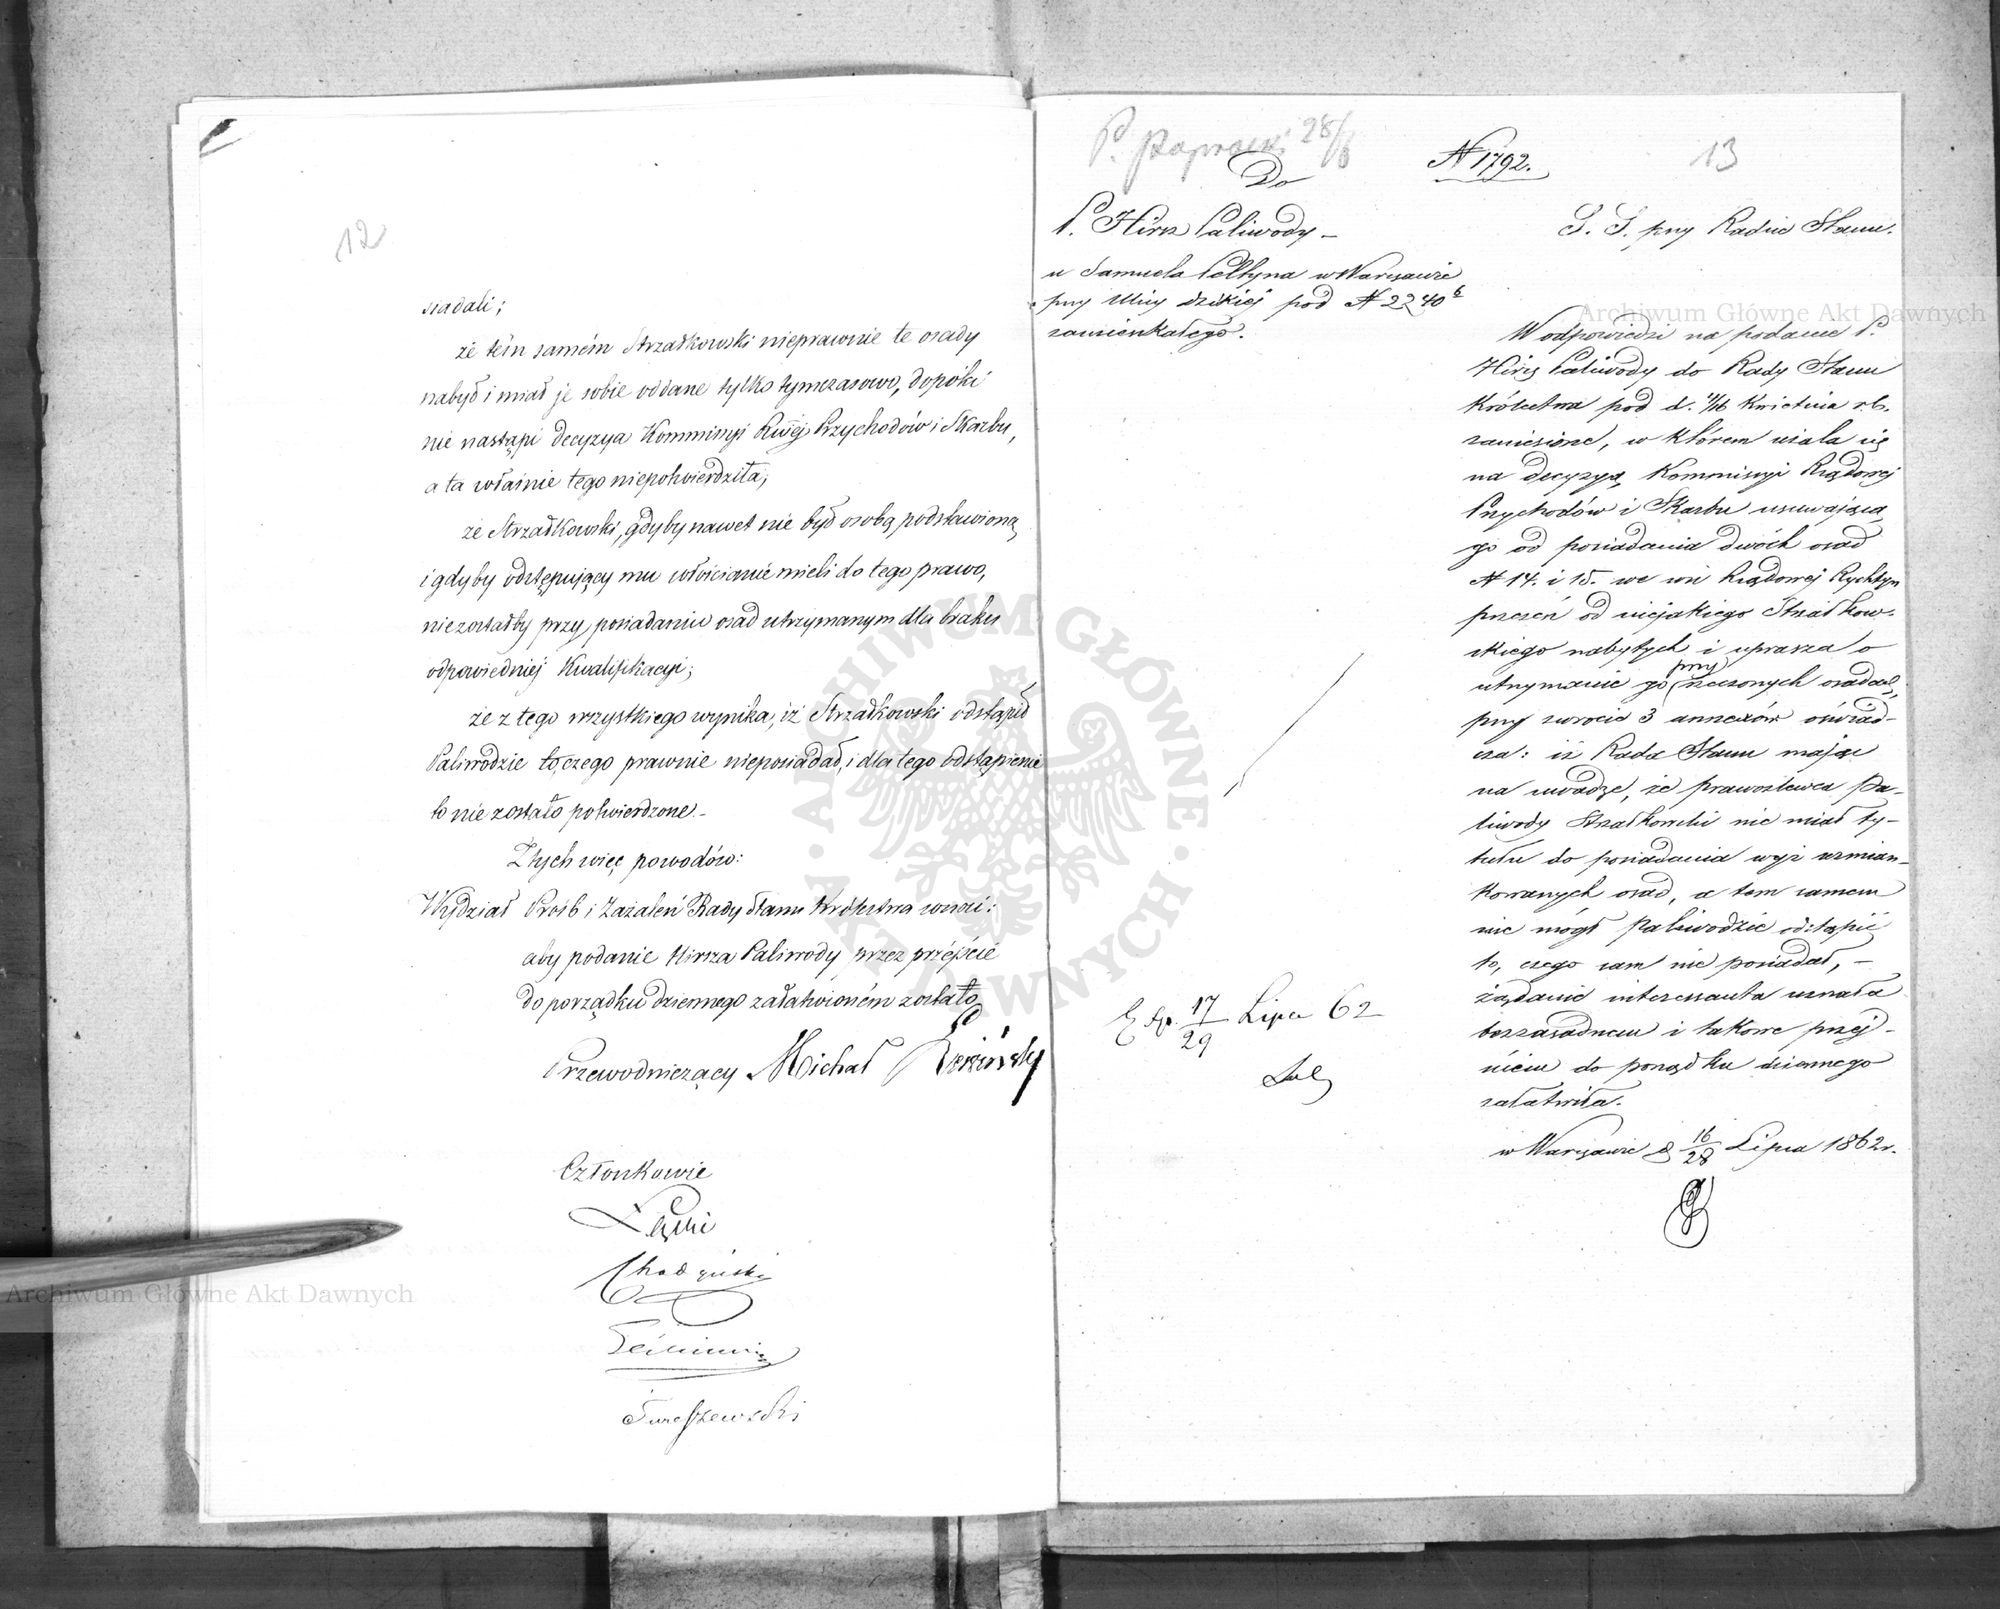 12
siadali;
że tém samém Strzałkowski nieprawnie te osady
nabył i miał je sobie oddane tylko tymczasowo, dopóki
nie nastąpi decyzya Kommissyi Rwéj Przychodów i Skarbu,
a ta właśnie tego niepotwierdziła;
że Strzałkowski, gdyby nawet nie był osobą podstawioną
i gdyby odstępujący mu włościanie mieli do tego prawo,
niezostałby przy posiadaniu osad utrzymanym dla braku
odpowiedniéj Kwalifikacyi;
że z tego wszystkiego wynika, iż Strzałkowski odstąpił
Paliwodzie to, czego prawnie nieposiadał, i dla tego odstąpienie
to nie zostało potwierdzone.-
Z tych więc powodów:
Wydział Próśb i Zażaleń Rady Stanu Królestwa wnosi:
aby podanie Hirsza Paliwody przez przéjście
do porządku dziennego załatwioném zostało
Przewodniczący Michał
Członkowie
Łęski
Chodzyński
Tureszewski
P. Paprocki 28/
Nº 1792.
13
Do
P. Hirsz Paliwody -
u Samuela Peltyna w Warszawie
przy Ulicy dzikiéj pod Nº 2240
zamieszkałego.
S. S. przy Radzie Stanu.
W odpowiedzi na podanie P.
Hirsz Paliwody do Rady Stanu
Królestwa pod d. 4/16 Kwietnia r.b.
zaniesione, w którem użala się
na decyzyą Kommissyi Rządowej
Przychodów i Skarbu usuwającą
go od posiadania dwóch osad
Nº 14. i 15. we wsi Rządowej Rychtyn
przezeń od niejakiego Strzałkow-
skiego nabytych i uprasza o
utrzymanie go przy rzeczonych osadach,
przy zwrocie 3 annexów oświad-
cza: iż Rada Stanu mając
na uwadze, że prawozlewca Pa-
liwody Strzałkowski nie miał ty-
tułu do posiadania wyż wzmian-
kowanych osad, a tem samem
nie mógł Paliwodzie odstąpić
to, czego sam nie posiadał, -
żądanie interessanta uznała
bezzasadnem i takowe przej-
ściem do porządku dziennego
załatwiła.
w Warszawie d 16/28 Lipca 1862 r.
Exp. 17/29 Lipca 62
ARCHIWUM GŁÓWNE AKT DAWNYCH
Archiwum Główne Akt Dawnych
Archiwum Główne Akt Dawnych